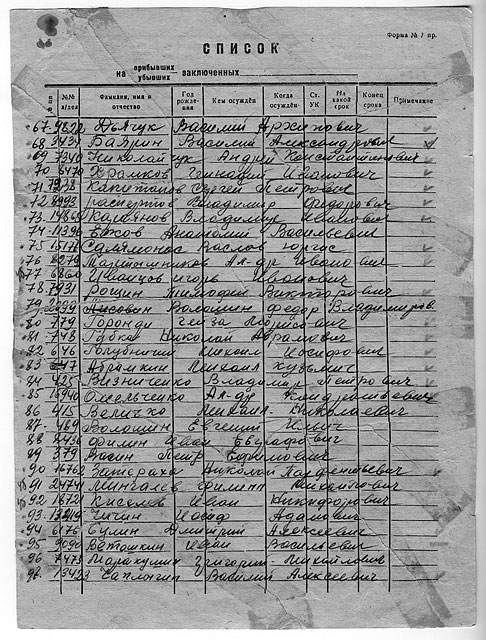 Форма № 7 пр.
СПИСОК
на прибывших убывших заключенных
№№ пп №№ л/дел Фамилия, имя и отчество Год рождения Кем осуждён Когда осуждён Ст. УК На какой срок Конец срока Примечание
67 9822 Дьячук Василий Архипович
68 3434 Баярин Василий Александрович
69 7340 Николайчук Андрей Константинович
70 6470 Храмков Геннадий Иванович
71 Капитанов Сергей Петрович
72 8993 Владимир Федорович
73 14868 Владимир Иванович
74 11396 Ежков Анатолий Васильевич
75 15171
76 8279 Плотников Ал-др Иванович
77 6860 Иванцов Игорь Иванович
78 7931 Рощин Тимофей Викторович
79 Волошин Федор Владимиров.
80 779 Горонди Гейза
81 748 Губка Николай Абрамович
82 646 Голубничий Михаил Иосифович
83 Абрамкин Михаил Кузьмич
84 425 Визниченко Владимир Петрович
85 16940 Омельченко Ал-др
86 415 Величко Михаил Николаевич
87 489 Волошин Евгений Ильич
88 8436 Филин Иван Евграфович
89 379 Васин Петр Ефимович
90 16762 Николай Парфентьевич
91 24741 Мингалев Филипп Михайлович
92 1872 Киселев Иван Никифорович
93 Чигин Иосиф Адамович
94 6176 Сулин Дмитрий Алексеевич
95 9090 Ветошкин Иван Васильевич
96 7473 Григорий Михайлович
97 13423 Василий Алексеевич